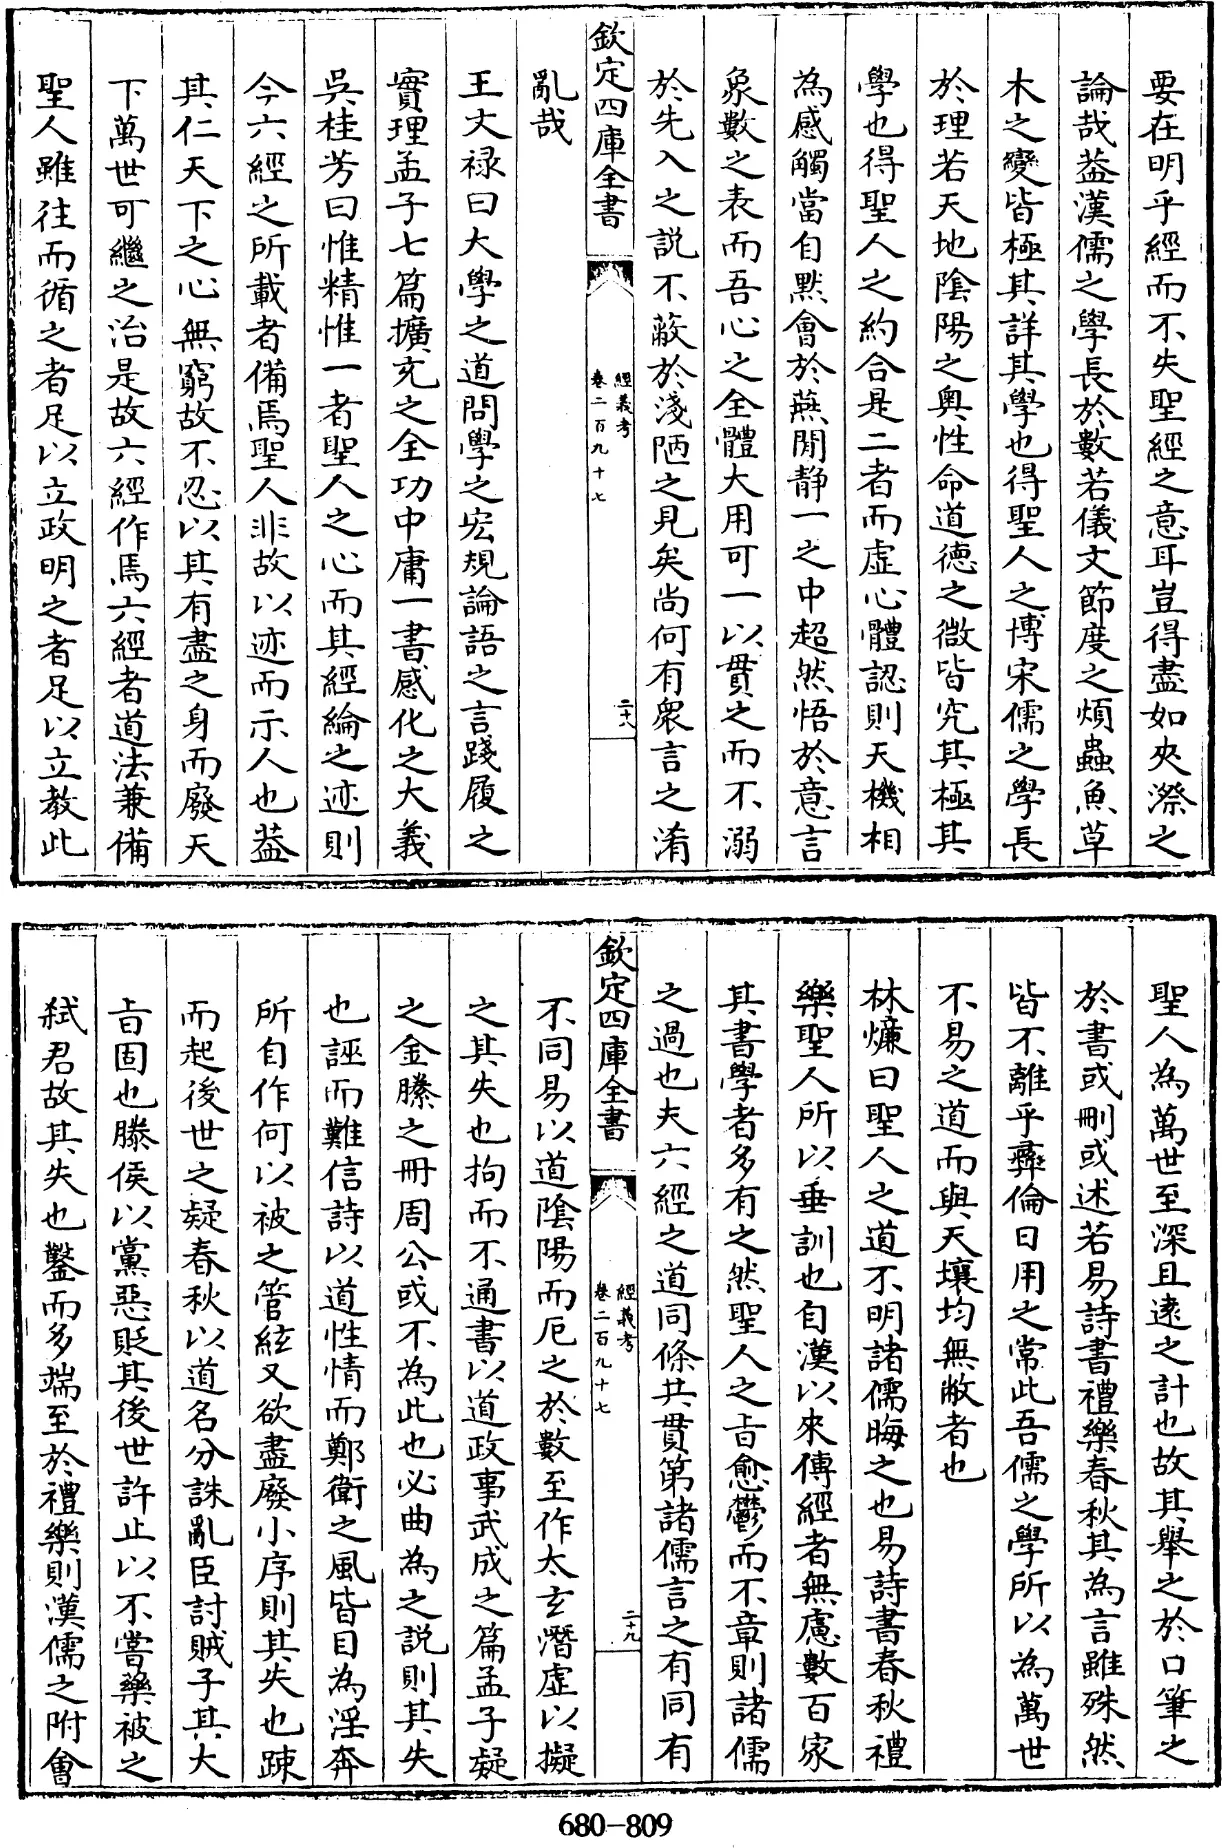 要在明乎經而不失聖經之意耳豈得盡如夾漈之
論哉葢漢儒之學長於數若儀文節度之煩蟲魚草
木之變皆極其詳其學也得聖人之博宋儒之學長
於理若天地陰陽之奥性命道德之微皆究其極其
學也得聖人之約合是二者而虛心體認則天機相
為感觸當自黙會於燕閒静一之中超然悟於意言
象數之表而吾心之全體大用可一以貫之而不溺
於先入之説不蔽於淺陋之見矣尚何有衆言之淆
欽定四庫全書
經義考
卷二百九十七
二十八
亂哉
王文禄曰大學之道問學之宏規論語之言踐履之
實理孟子七篇擴充之全功中庸一書感化之大義
吳桂芳曰惟精惟一者聖人之心而其經綸之迹則
今六經之所載者備焉聖人非故以迹而示人也葢
其仁天下之心無窮故不忍以其有盡之身而廢天
下萬世可繼之治是故六經作焉六經者道法兼備
聖人雖往而循之者足以立政明之者足以立教此
聖人為萬世至深且遠之計也故其舉之於口筆之
於書或刪或述若易詩書禮樂春秋其為言雖殊然
皆不離乎彛倫日用之常此吾儒之學所以為萬世
不易之道而與天壤均無敝者也
林㷍曰聖人之道不明諸儒晦之也易詩書春秋禮
樂聖人所以垂訓也自漢以來傳經者無慮數百家
其書學者多有之然聖人之㫖愈鬱而不章則諸儒
之過也夫六經之道同條共貫第諸儒言之有同有
欽定四庫全書
經義考
卷二百九十七
二十九
不同易以道陰陽而厄之於數至作太玄潛虛以擬
之其失也拘而不通書以道政事武成之篇孟子疑
之金縢之冊周公或不為此也必曲為之説則其失
也誣而難信詩以道性情而鄭衛之風皆目為淫奔
所自作何以被之管絃又欲盡廢小序則其失也踈
而起後世之疑春秋以道名分誅亂臣討賊子其大
㫖固也滕侯以黨惡貶其後世許止以不嘗藥被之
弑君故其失也鑿而多端至於禮樂則漢儒之附會
680-809